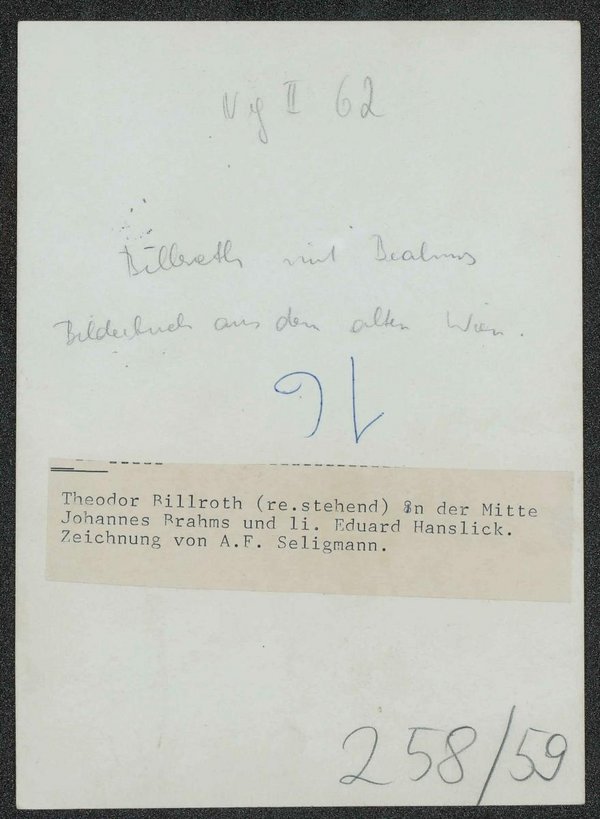 II 62
Billroth mit Brahms
Bilderbuch aus dem alten Wien.
16
Theodor Billroth (re.stehend) in der Mitte
Johannes Brahms und li. Eduard Hanslick.
Zeichnung von A.F. Seligmann.
258/59